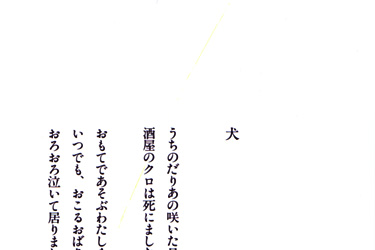 犬
うちのだりあの咲いた
酒屋のクロは死にまし
おもてであそぶわたし
いつでも、おこるおば
おろおろ泣いて居りま